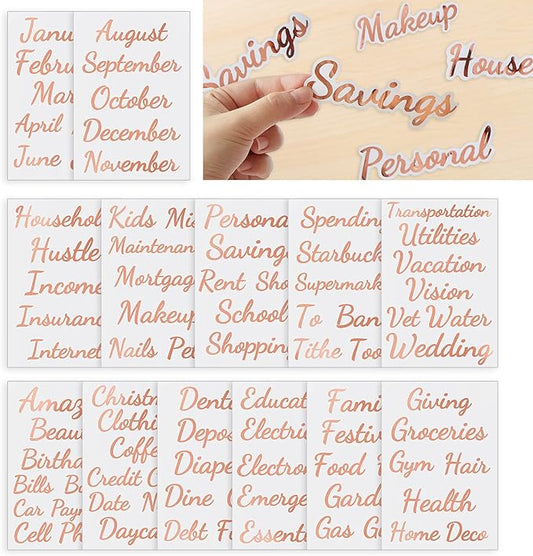 Janu
Febru
Mar
April M
June J
August
September
October
December
November
Savings
Makeup
House
Savings
Personal
Household
Hustle
Income
Insuran
Internet
Kids Mis
Maintenan
Mortgag
Makeup
Nails Pe
Persona
Saving
Rent Sho
School
Shoppin
Spending
Starbuck
Supermark
To Ban
Tithe Too
Transportation
Utilities
Vacation
Vision
Vet Water
Wedding
Amaz
Beau
Birtha
Bills B
Car Payn
Cell Ph
Christm
Clothi
Coffe
Credit C
Date N
Dayca
Dent
Depos
Diape
Dine
Debt F
Educat
Electri
Electron
Emerge
Essenti
Fami
Festiv
Food F
Gard
Gas G
Giving
Groceries
Gym Hair
Health
Home Deco